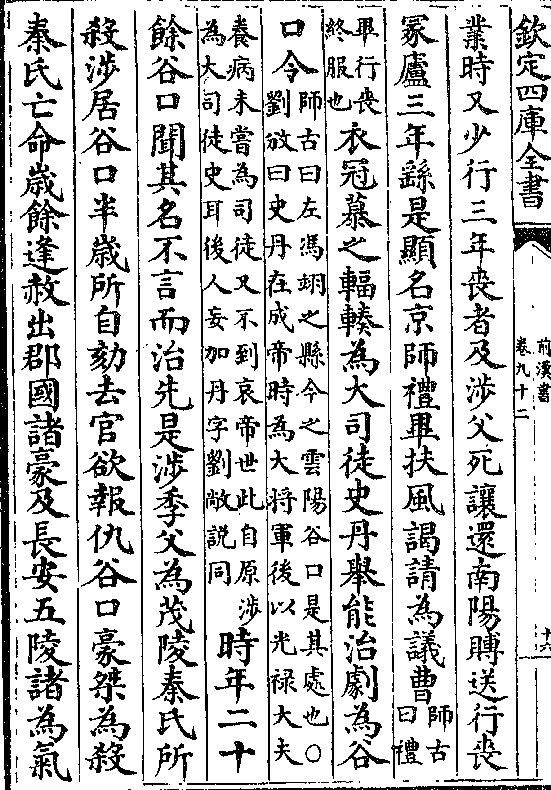 欽定四庫全書
前漢書
卷九十二
十六
業時又少行三年喪者及涉父死讓還南陽賻送行喪
冢廬三年繇是顯名京師禮畢扶風謁請為議曹師古曰禮
畢行喪終服也衣冠慕之輻輳為大司徒史丹舉能治劇為谷
口令師古曰左馮翊之縣今之雲陽谷口是其處也○劉攽曰史丹在成帝時為大將軍後以光禄大夫
養病未嘗為司徒又不到哀帝世此自原涉為大司徒史耳後人妄加丹字劉敞説同時年二十
餘谷口聞其名不言而治先是涉季父為茂陵秦氏所
殺涉居谷口半歲所自劾去官欲報仇谷口豪桀為殺
秦氏亡命歲餘逢赦出郡國諸豪及長安五陵諸為氣